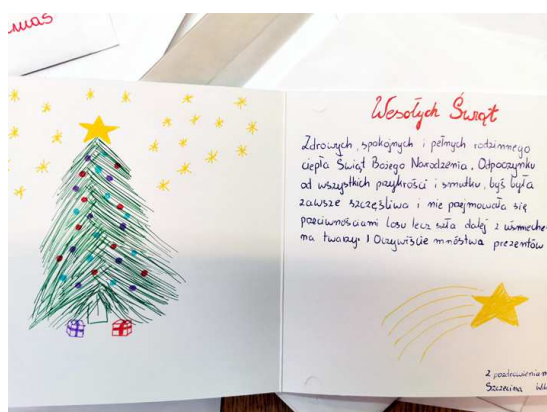 Wesołych Świąt
Zdrowych, spokojnych i pełnych rodzinnego
ciepła Świąt Bożego Narodzenia. Odpoczynku
od wszystkich przykrości i smutku, byś była
zawsze szczęśliwa i nie przejmowała się
przeciwnościami losu lecz szła dalej z uśmieche
na twarzy. I Oczywiście mnóstwa prezentów
z pozdrowieniam
Szczecina